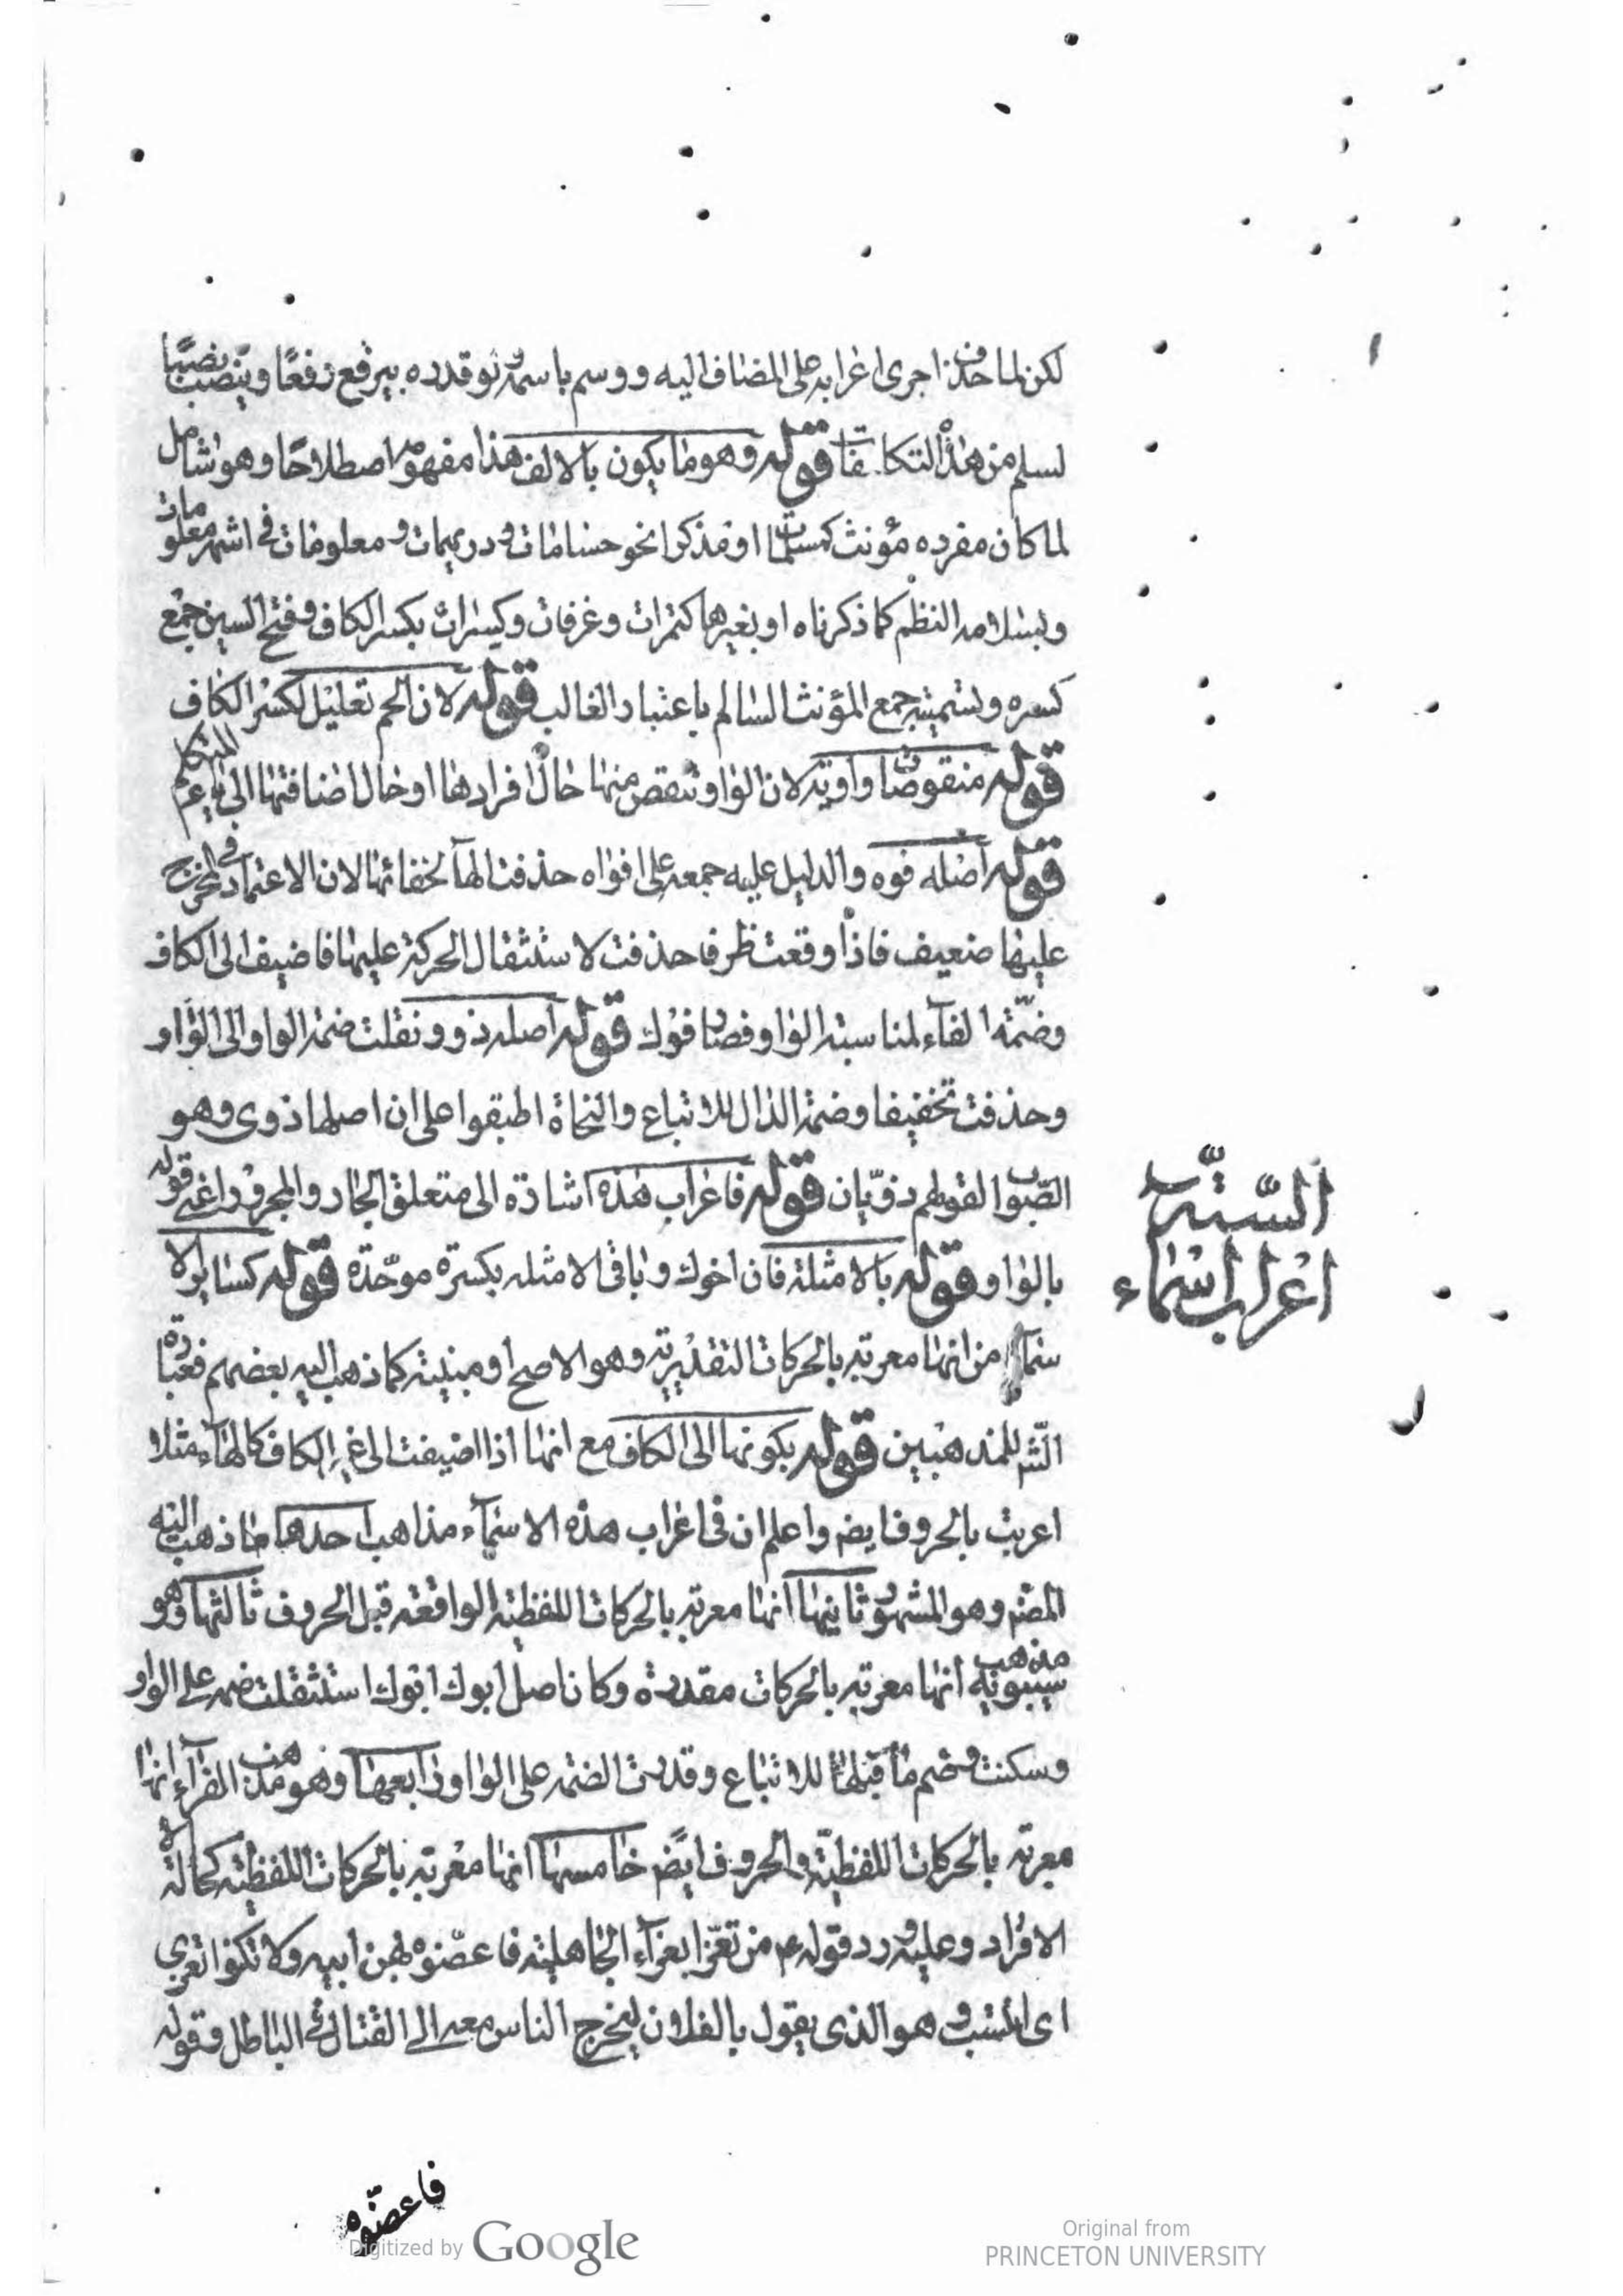 لكن لما حذف اجرى اعرابه على المضاف اليه ووسم باسمه نو قدره يرفع رفعًا وينصب نصبًا
لسلم من هذا التكلفات قوله وهو ما يكون بالالف هذا مفهومه اصطلاحًا وهو شامل
لما كان مفرده مؤنث كمسلمات او مذكرا نحو حسامات ودريهمات ومعلومات في اشهر معلومات
وبسلامه النظم كما ذكرناه او بغيرها كتمرات وغرفات وكيسرات بكسر الكاف وفتح السين جمع
كسره وتسميته جمع المؤنث السالم باعتبار الغالب قوله لان الحم تعليل لكسر الكاف
قوله منقوصات واوية لان الواو تنقص منها حال افرادها او حال اضافتها الى ياء المتكلم
قوله اصله فوه والدليل عليه جمعه على افواه حذفت الهآ لخفائها لان الاعتماد في المخرج
عليها ضعيف فاذا وقعت ظرفا حذفت لاستثقال الحركة عليها فاضيف الى الكاف
وضمّة الفآء لمناسبة الواو فصار فوك قوله اصله ذوو نقلت ضمة الواو الى الواو
وحذفت تخفيفا وضمة الذال للاتباع والنحاة اطبقوا على ان اصلها ذوى وهو
الصّواب لقولهم ذويّان قوله فاعراب هذه اشارة الى متعلق الجار والمجرور اعنى قوله
بالواو قوله بالامثلة فان اخوك وباقى الامثله بكسرة موحّدة قوله كسا يرالا
سمآ من انها معربة بالحركات التقديرية وهو الاصح او مبنية كما ذهب اليه بعضهم فعبارة
الشّ للمذهبين قوله بكونها الى الكاف مع انها اذا اضيفت الى غير الكاف كالهآء مثلا
اعربت بالحروف ايضا واعلم ان فى اعراب هذه الاسمآء مذاهب احدها ما ذهب اليه
المصّ وهو المشهور ثانيها انها معربة بالحركات اللفظية الواقعة قبل الحروف ثالثها وهو
مذهب سيبويه انها معربة بالحركات مقدرة وكان اصل ابوك ابوك استثقلت ضمه على الواو
وسكنت وضم ما قبلها للاتباع وقدرت الضمه على الواو رابعها وهو مذهب الفرآء انها
معربة بالحركات اللفظيّة والحروف ايضًا خامسها انها معربة بالحركات اللفظية كحالة
الافراد وعليه ورد قوله ع من تعزّا بعزآء الجاهلية فاعضّوه بهن ابيه ولا تكنوا تعزى
اى انتسب وهو الذى يقول بالفلان ليخرج الناس معه الى القتال في الباطل وقوله
فاعضّوه
اعراب اسماء
الستّة
Digitized by Google
Original from
PRINCETON UNIVERSITY